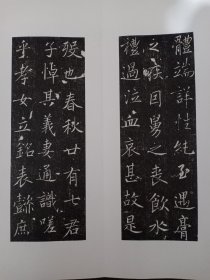 體端詳性純玉遇膏
之疾因舅之喪飲水
禮過泣血哀甚故是
殁也春秋廿有七君
子悼其義妻通識嗟
乎孝女立銘表